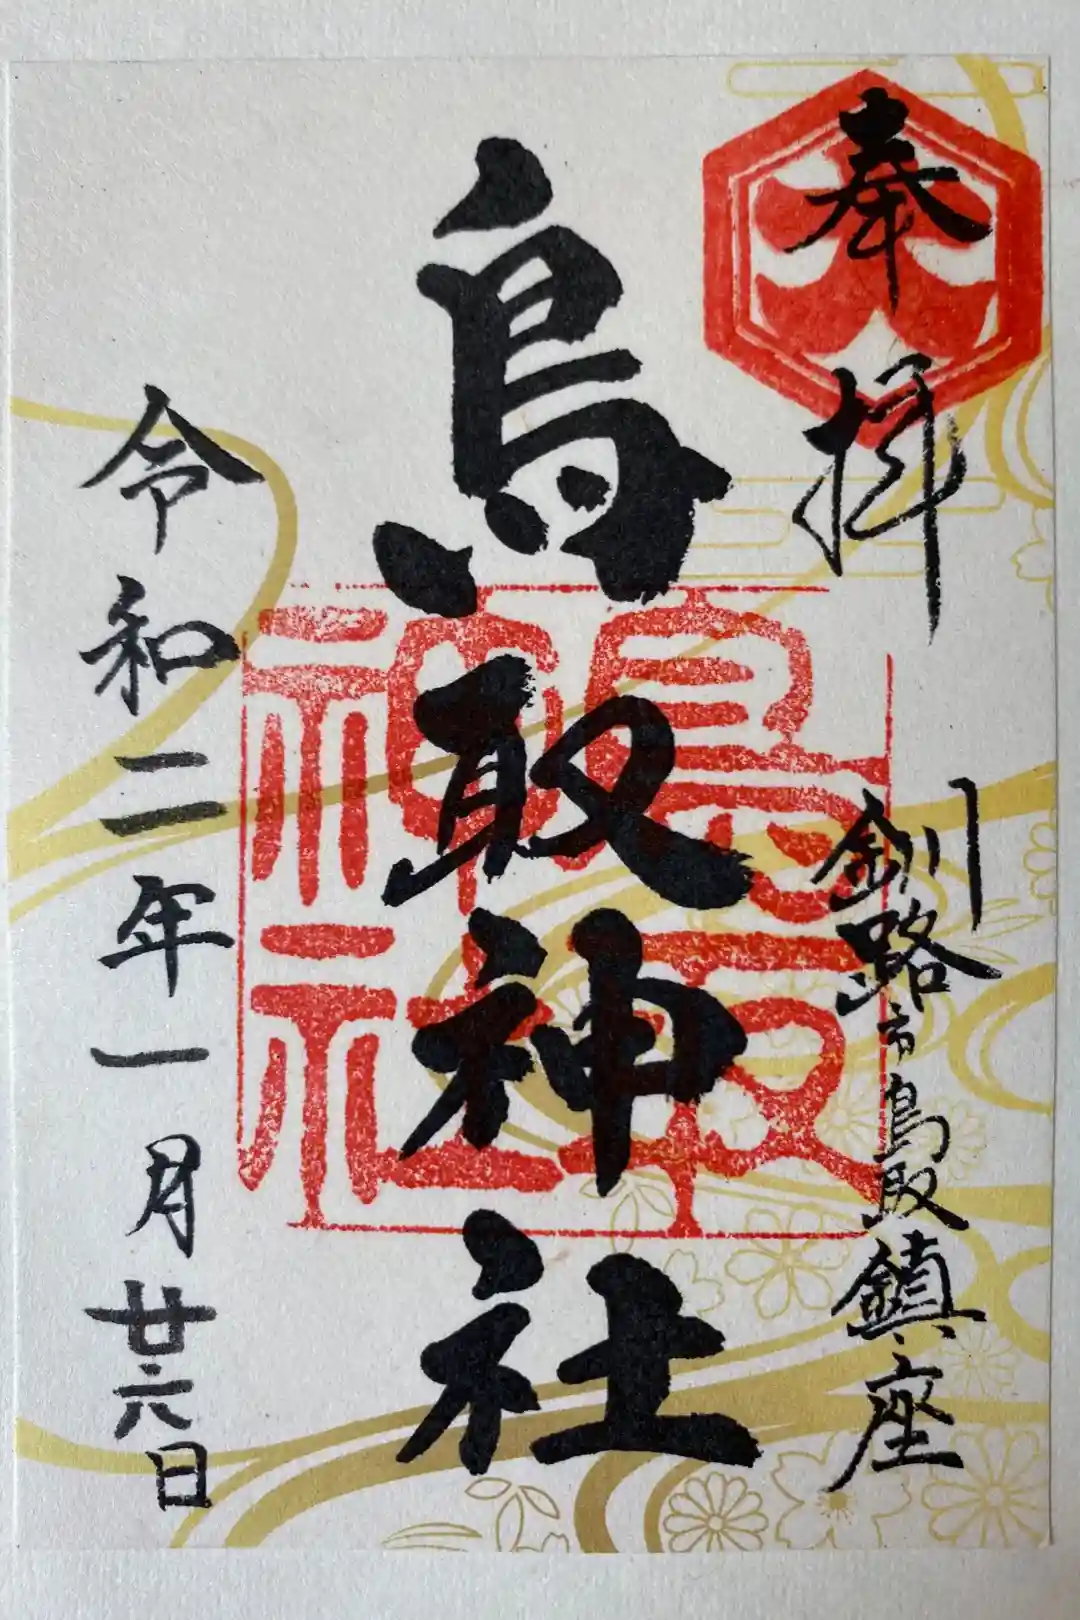 奉拝
釧路市鳥取鎮座
鳥取神社
鳥取
神社
令和二年一月廿六日